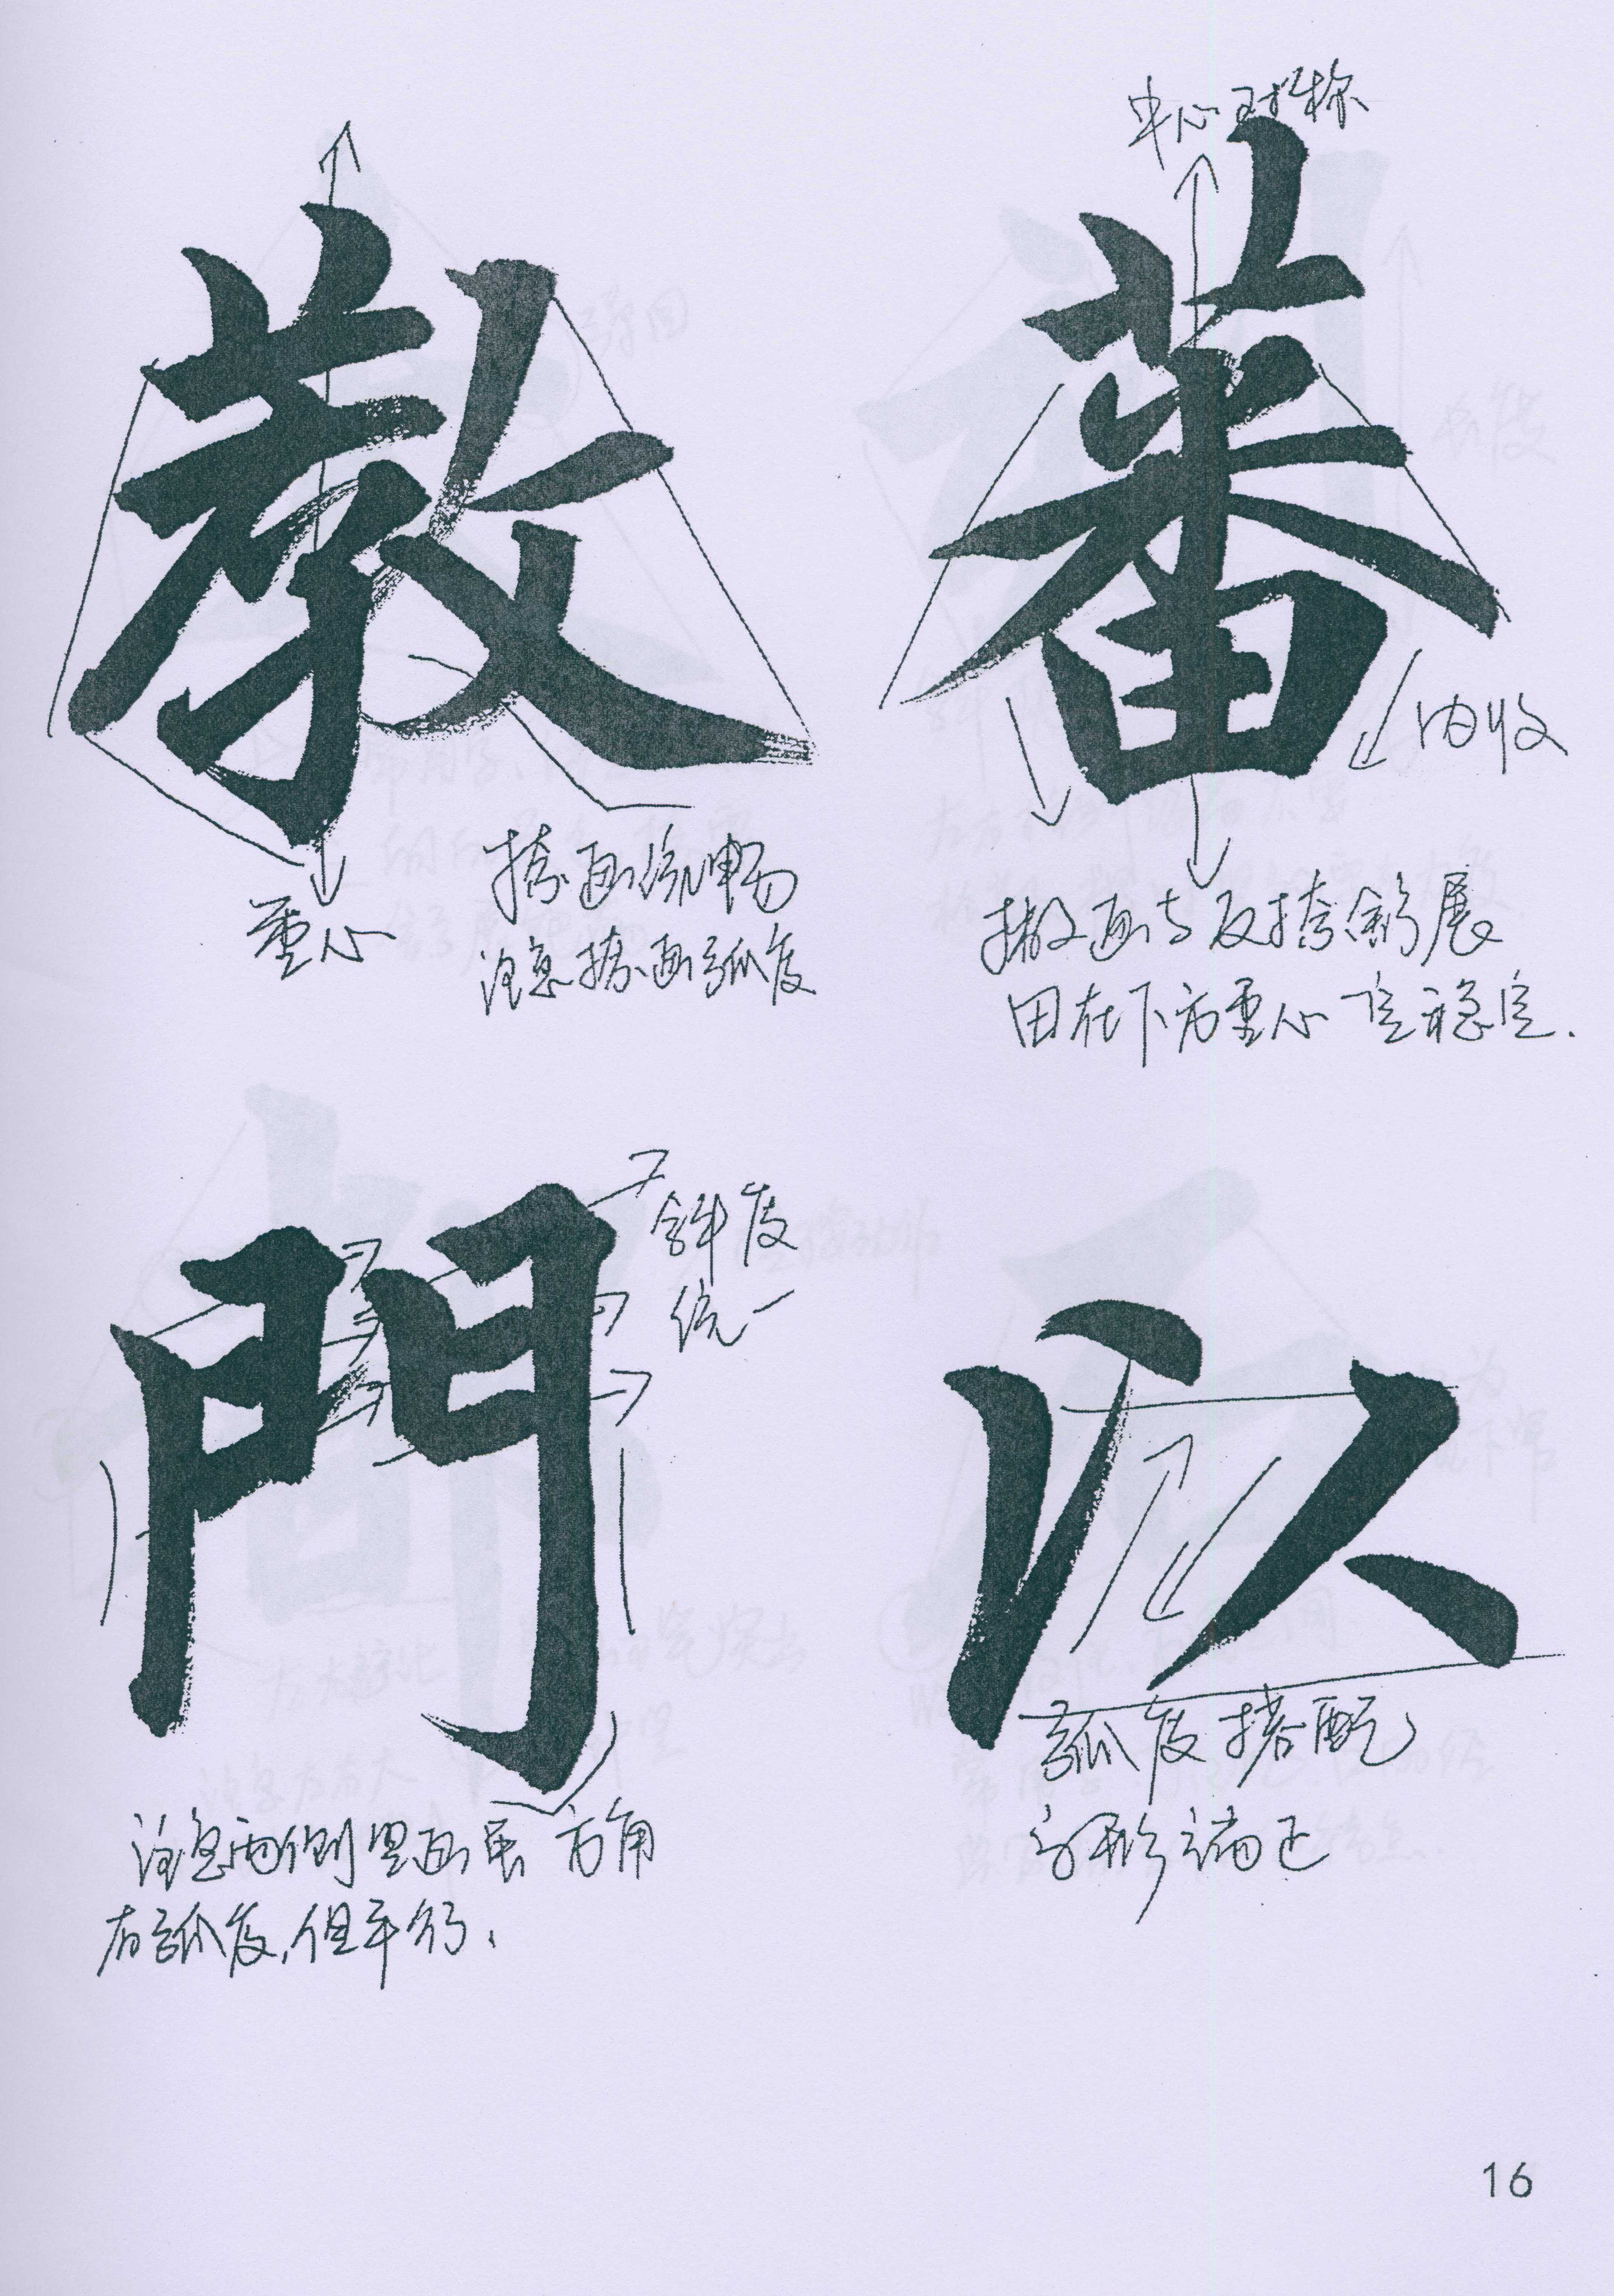 中心对称
教
蕃
内收
重心
捺画流畅
注意捺画弧度
撇画与反捺舒展
田在下方重心一定稳定.
門
斜度
统一
以
弧度搭配
字形端正
注意两侧竖画虽
方角
有弧度,但平行.
16